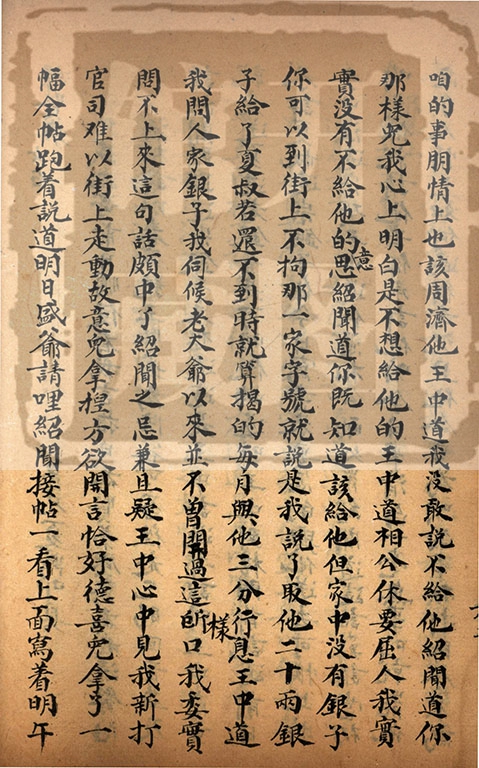 咱的事朋情上也該周濟他王中道我没敢説不給他紹聞道你
那樣兒我心上明白是不想給他的王中道相公休要屈人我實
實没有不給他的意思紹聞道你既知道該給他但家中没有銀子
你可以到街上不拘那一家字號就説是我説了取他二十兩銀
子給了夏叔若還不到時就算揭的每月與他三分行息王中道
我問人家銀子我伺候老大爺以來並不曾開過這樣口我委實
問不上來這句話頗中了紹聞之忌兼且疑王中心中見我新打
官司难以街上走動故意兒拿捏方欲開言恰好德喜兒拿了一
幅全帖跑着説道明日盛爺請哩紹聞接帖一看上面寫着明午